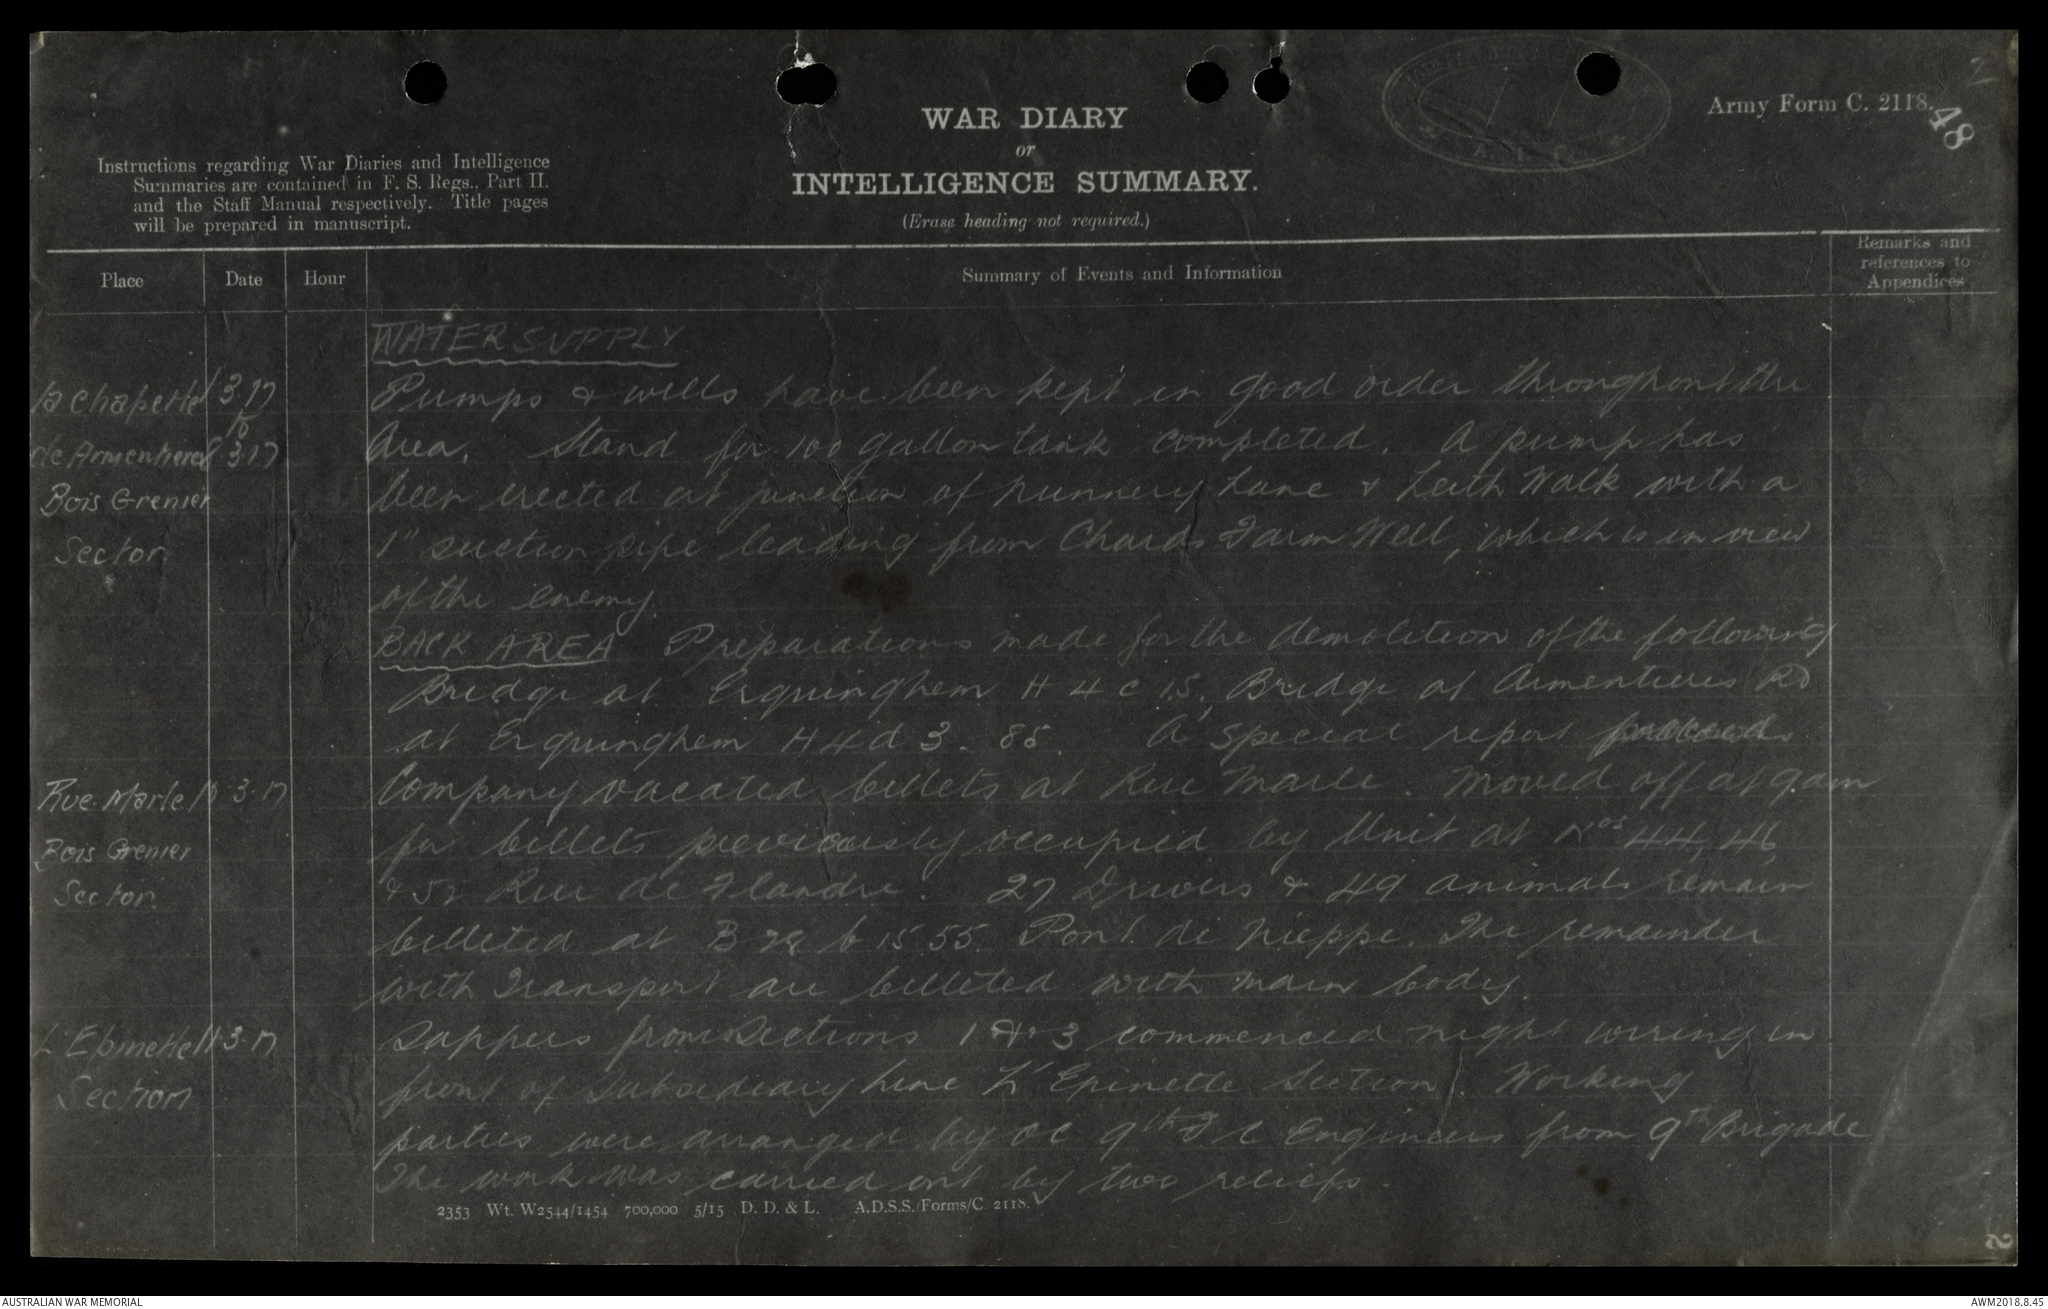 2
Army Form C. 2118.
48
WAR DIARY
or
INTELLIGENCE SUMMARY.
(Erase heading not required.)
Instructions regarding War Diaries and Intelligence
Summaries are contained in F. S. Regs., Part II.
and the Staff Manual respectively. Title pages
will be prepared in manuscript.
Place
Date
Hour
Summary of Events and Information
Remarks and
references to
Appendices
WATER SUPPLY
la Chapelle 1 3.17 Pumps & wells have been kept in good order throughout the
to
de Armentieres 8 3.17 Area. Stand for 100 gallon tank completed. A pump has
Bois Grenier been erected at junction of Nunnery Lane & Leith Walk with a
Sector 1" suction pipe leading from Chards Farm Well, which is in view
of the enemy.
BACK AREA Preparations made for the demolition of the following
Bridge at Erquinghem H 4 c 15, Bridge at Armentieres Rd
at Erquinghem H 4 d 3. 85. A special report
Rue Marle 10.3.17 Company vacated billets at Rue Marle. Moved off at 9 am
Bois Grenier for billets previously occupied by Unit at Nos 44, 46
Sector. & 52 Rue de Flandre. 27 Drivers & 49 animals remain
billeted at B 28 b 15 55. Pont de Nieppe. The remainder
with Transport are billeted with main body.
L'Epinette 11.3.17 Sappers from Sections 1 & 3 commenced night wiring in
Section front of Subsidiary Line L'Epinette Section. Working
parties were arranged by OC 9th F C Engineers from 9th Brigade
The work was carried out by two reliefs.
2353 Wt. W2544/1454 700,000 5/15 D. D. & L. A.D.S.S./Forms/C. 2118.
2
AUSTRALIAN WAR MEMORIAL
AWM2018.8.45